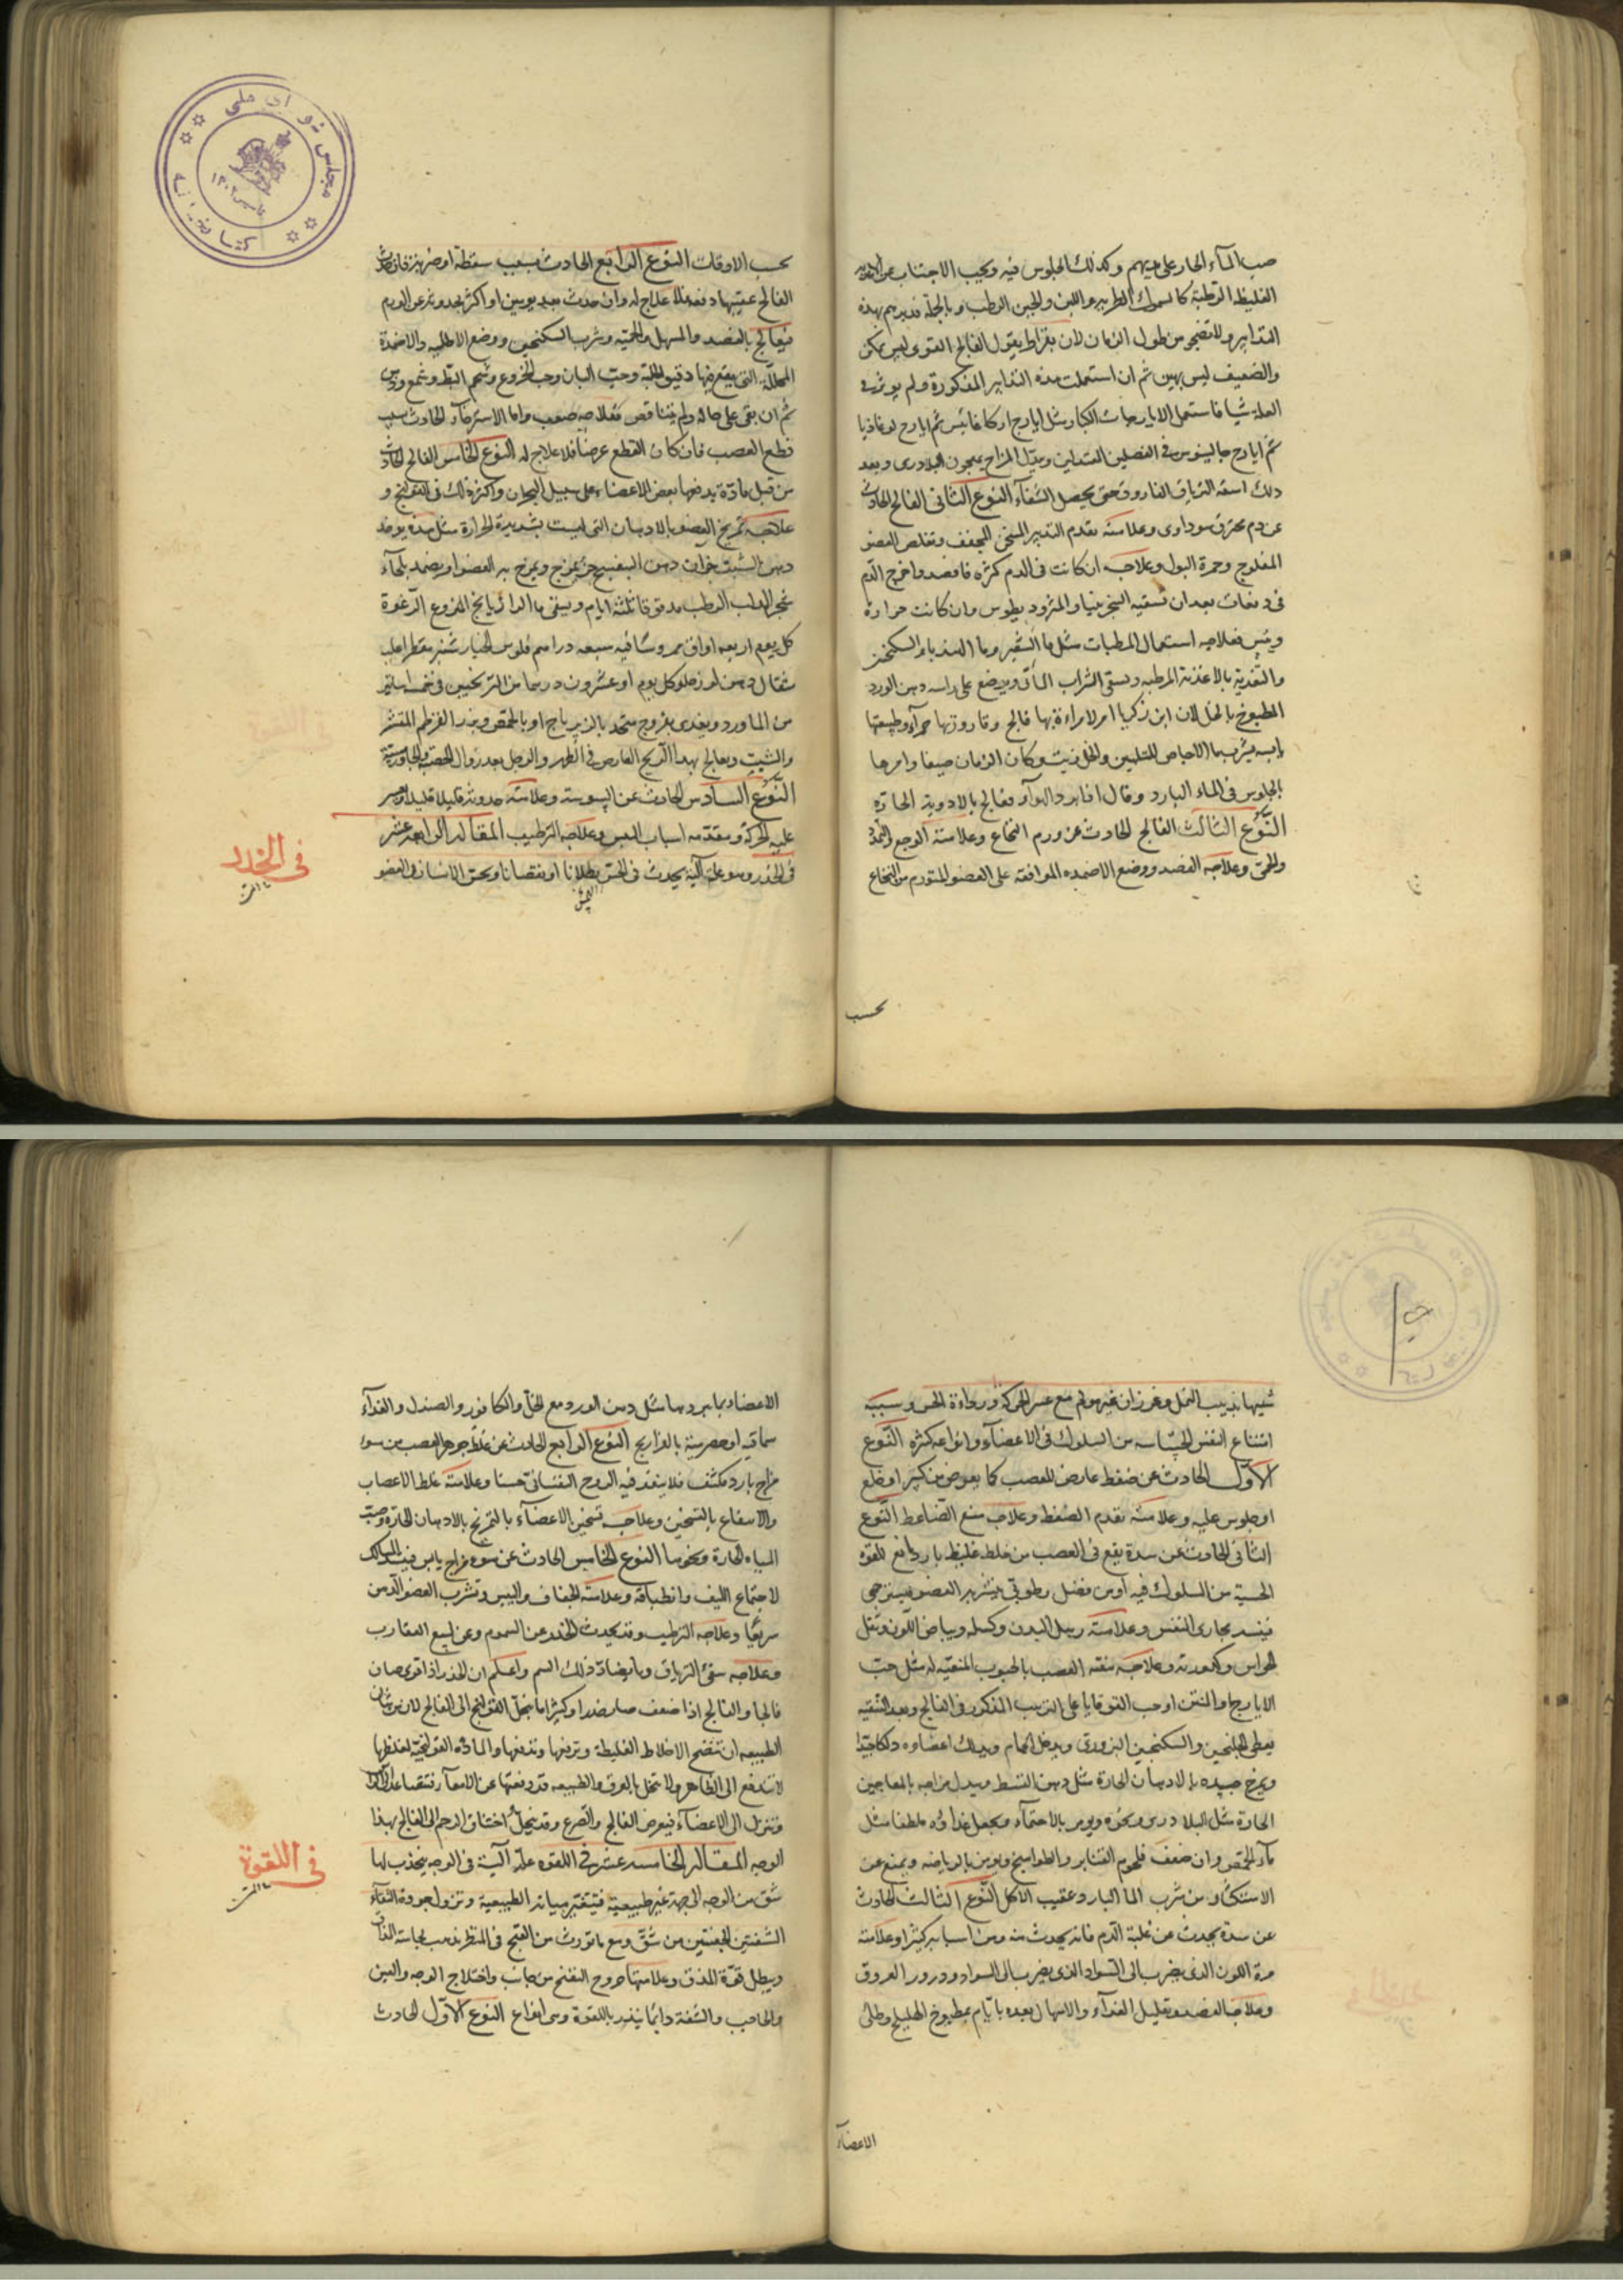 صب الماء الحار على جنبهم وكذلك الجلوس فيه ويجب الاجتناب عن الاغذية
الغليظة الرطبة كالسموك الطرية واللبن والجبن الرطب وبالجملة فدبرهم بهذه
التدابير ولا تضجر من طول الزمان لان بقراط يقول الفالج القوى ليس يمكن
والضعيف ليس بهين ثم ان استعملت هذه التدابير المذكورة ولم يوثر فى
العلة شيا فاستعمل الايارجات الكبار مثل ايارج اركاغانيس ثم ايارج لوغاذيا
ثم ايارج جالينوس فى الفصلين المعتدلين وبدل المزاج بمعجون البلادرى وبعد
ذلك اسقه الترياق الفاروق حتى يحصل الشفآء النوع الثانى الفالج الحادث
عن دم محترق سوداوى وعلامته تقدم التدبير المسخن المجفف وتقلص العضو
المفلوج وحمرة البول وعلاجه ان كانت فى الدم كثرة فافصد واخرج الدم
فى دفعات بعد ان تسقيه السجزينيا والمثروديطوس وان كانت حرارة
ويبس فعلاجه استعمال المرطبات مثل ما الشعير وما الهندباء بالسكنجبين
والتغذية بالاغذية المرطبة ويسقى الشراب المائى ويوضع على راسه دهن الورد
المطبوخ بالخل لان ابن زكريا امر لامراءة بها فالج وقارورتها حمرآء وطبيعتها
يابسة بشرب ما الاجاص للتليين والخل زيت وكان الزمان صيفا وامرها
بالجلوس فى الماء البارد وقال اذا برد الهوآء فعالج بالادوية الحارة
النوع الثالث الفالج الحادث عن ورم النخاع وعلامته الوجع والتمدد
والحمى وعلاجه الفصد ووضع الاضمدة الموافقة على العضو المتورم من النخاع
بحسب
بحسب الاوقات النوع الرابع الحادث بسبب سقطة او ضربة فان حدث
الفالج عقيبها دفعة فلا علاج له وان حدث بعد يومين او اكثر لحدوثه عن الورم
فيعالج بالفصد والمسهل والحمية وشرب السكنجبين ووضع الاطلية والاضمدة
المحللة التى يقع فيها دقيق الحلبة وحب البان وحب الخروع وشحم البط وشمع ودهن
ثم ان بقى على حاله ولم يتناقص فعلاجه صعب واما الاسترخآء الحادث بسبب
قطع العصب فان كان القطع عرضا فلا علاج له النوع الخامس الفالج الحادث
من قبل مادة يدفعها بعض الاعضاء على سبيل البحران واكثر ذلك فى القولنج و
علاجه تمريخ العضو بالادهان التى ليست بشديدة الحرارة مثل هذه يوخذ
دهن الشبت جزآن دهن البنفسج جزء يمزج ويمرخ به العضو او يضمد بلحآء
شجر الدلب الرطب مدقوقا ثلثة ايام ويسقى ما الرازيانج المنزوع الرغوة
كل يوم اربعة اواق ممروسا فيه سبعة دراهم فلوس الخيار شنبر مقطرا عليه
مثقال دهن لوز حلو كل يوم او عشرون درهما من الترنجبين فى خمسة اساتير
من الماورد ويغذى بفروج متخذ بالزيرباج او بالحمص وبزر القرطم المقشر
والشبت ويعالج بهذا الريح العارض فى الظهر والورك بعد زوال
النوع السادس الحادث عن اليبوسة وعلامته حدوثه قليلا قليلا وعسر
عليه الحركة ومقدمة اسباب اليبس وعلاجه الترطيب المقالة الرابعة عشر
فى الخدر وهو علة آلية يحدث فى الحس بطلانا او نقصانا ويحس الانسان فى العضو
فى الخدر
شبيها بدبيب النمل وغرزان غير مولم مع عسر الحركة ورداءة الحس وسببه
امتناع النفس الحساسة من السلوك فى الاعضآء وانواعه كثيرة النوع
الاول الحادث عن ضغط عارض للعصب كما يعرض من كسر او خلع
او جلوس عليه وعلامته تقدم الضغط وعلاجه منع الضاغط النوع
الثانى الحادث عن سدة يقع فى العصب من خلط غليظ بارد مانع للقوة
الحسية من السلوك فيه او من فضل رطوبى يتشربه العضو فيسترخى
فيسد مجارى النفس وعلامته ترهل البدن وكسله وبياض اللون وثقل
الحواس وكدورته وعلاجه تنقية العصب بالحبوب المنقية له مثل حب
الايارج والمنتن او حب القوقايا على الترتيب المذكور فى الفالج وبعد التنقية
يعطى الجلنجبين والسكنجبين البزورى ويدخل الحمام ويدلك اعضاوه دلكا جيدا
ويمرخ جسده بالادهان الحارة مثل دهن القسط ويبدل مزاجه بالمعاجين
الحارة مثل البلادرى ونحوه ويومر بالاحتمآء ويجعل غذاؤه ملطفا مثل
مآء الحمص وان ضعف فلحوم القنابر والطواهيج ويومر بالرياضة ويمنع عن
الاستكثار من شرب الما البارد عقيب الاكل النوع الثالث الحادث
عن سدة يحدث عن غلبة الدم فانه يحدث منه ومن اسبابه كثيرا وعلامته
حمرة اللون الذى يضرب الى السواد ودرور العروق
وعلاجه الفصد وتقليل الغذآء والاسهال بعده بايام بمطبوخ الهليلج وطلى
الاعضآء
الاعضاء بما يبردها مثل دهن الورد مع الخل والكافور والصندل والغذآء
سماقية او حصرمية بالفراريج النوع الرابع الحادث عن غلظ جوهر العصب من سوء
مزاج بارد مكثف فلا ينفذ فيه الروح النفسانى حسنا وعلامته غلظ الاعصاب
والانتفاع بالتسخين وعلاجه تسخين الاعضآء بالتمريخ بالادهان الحارة وصب
المياه الحارة ونحوها النوع الخامس الحادث عن سوء مزاج يابس فينسد المسالك
لاجتماع الليف وانطباقه وعلامته الجفاف واليبس وتشرب العضو الدهن
سريعا وعلاجه الترطيب وقد يحدث الخدر عن السموم وعن لسع العقارب
وعلاجه سقى الترياق وما يضاد ذلك السم واعلم ان الخدر اذا قوى صار
فالجا والفالج اذا ضعف صار خدرا وكثيرا ما ينحل القولنج الى الفالج لان من شان
الطبيعة ان تنضج الاخلاط الغليظة وترققها وتدفعها والمادة القولنجية لغلظها
لا تندفع الى الظاهر ولا تتحلل بالعرق والطبيعة قد دفعتها عن الامعآء فتتصاعد
وتنزل الى الاعضآء فيعرض الفالج والصرع وقد ينحل اختناق الرحم الى الفالج بهذا
الوجه المقالة الخامسة عشر فى اللقوة علة آلية فى الوجه ينجذب لها
شق من الوجه الى جهة غير طبيعية فيتغير هياته الطبيعية وتزول جودة التقآء
الشفتين والجفنين من شق ومع ما تورث من القبح فى المنظر يذهب
ويبطل قوة المذق وعلامتها خروج النفخ من جانب واختلاج الوجه والعين
والحاجب والشفة دايما ينذر باللقوة وهى انواع النوع الاول الحادث
فى اللقوة